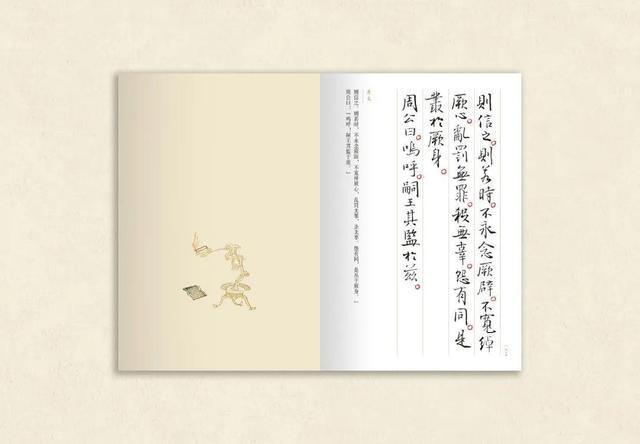 則信之。則若時。不永念厥辟。不寬綽
厥心。亂罰無罪。殺無辜。怨有同。是
叢於厥身。
周公曰。嗚呼。嗣王其監於茲。
则信之，则若时，不永念厥辟，不宽绰厥心，乱罚无罪，杀无辜。怨有同，是丛于厥身。”
周公曰：“呜呼！嗣王其监于兹。”